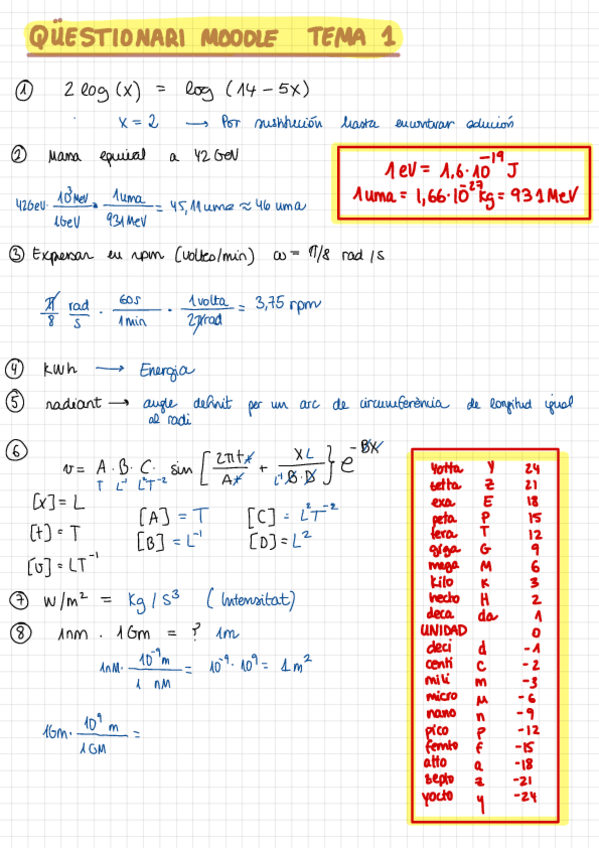 QÜESTIONARI MOODLE TEMA 1
① 2 log (x) = log (14 - 5x)
x = 2 → Por sustitución hasta encontrar solución
② Massa equival a 42 GeV
1 eV = 1,6·10⁻¹⁹ J
1 uma = 1,66·10⁻²⁷ kg = 931 MeV
42GeV · 10³ MeV / 1GeV · 1uma / 931 MeV = 45,11 uma ≈ 46 uma
③ Expresar en rpm (voltes/min) ω = π/8 rad/s
π/8 rad/s · 60s / 1min · 1 volta / 2π rad = 3,75 rpm
④ kWh → Energia
⑤ radiant → angle definit per un arc de circumferència de longitud igual
al radi
⑥ v = A · B · C · sin [ 2πt / A + X / B·D ] e^-BX
T L⁻¹ L²T⁻²
[X] = L
[t] = T
[v] = LT⁻¹
[A] = T
[B] = L⁻¹
[C] = L²T⁻²
[D] = L²
⑦ W/m² = Kg/s³ (Intensitat)
⑧ 1nm · 1Gm = ? 1m
1nM · 10⁻⁹m / 1 nM = 10⁻⁹ · 10⁹ = 1m²
1Gm · 10⁹ m / 1GM =
Yotta Y 24
zetta Z 21
exa E 18
peta P 15
tera T 12
giga G 9
mega M 6
kilo K 3
hecto H 2
deca da 1
UNIDAD 0
deci d -1
centi c -2
mili m -3
micro μ -6
nano n -9
pico p -12
femto f -15
atto a -18
zepto z -21
yocto y -24